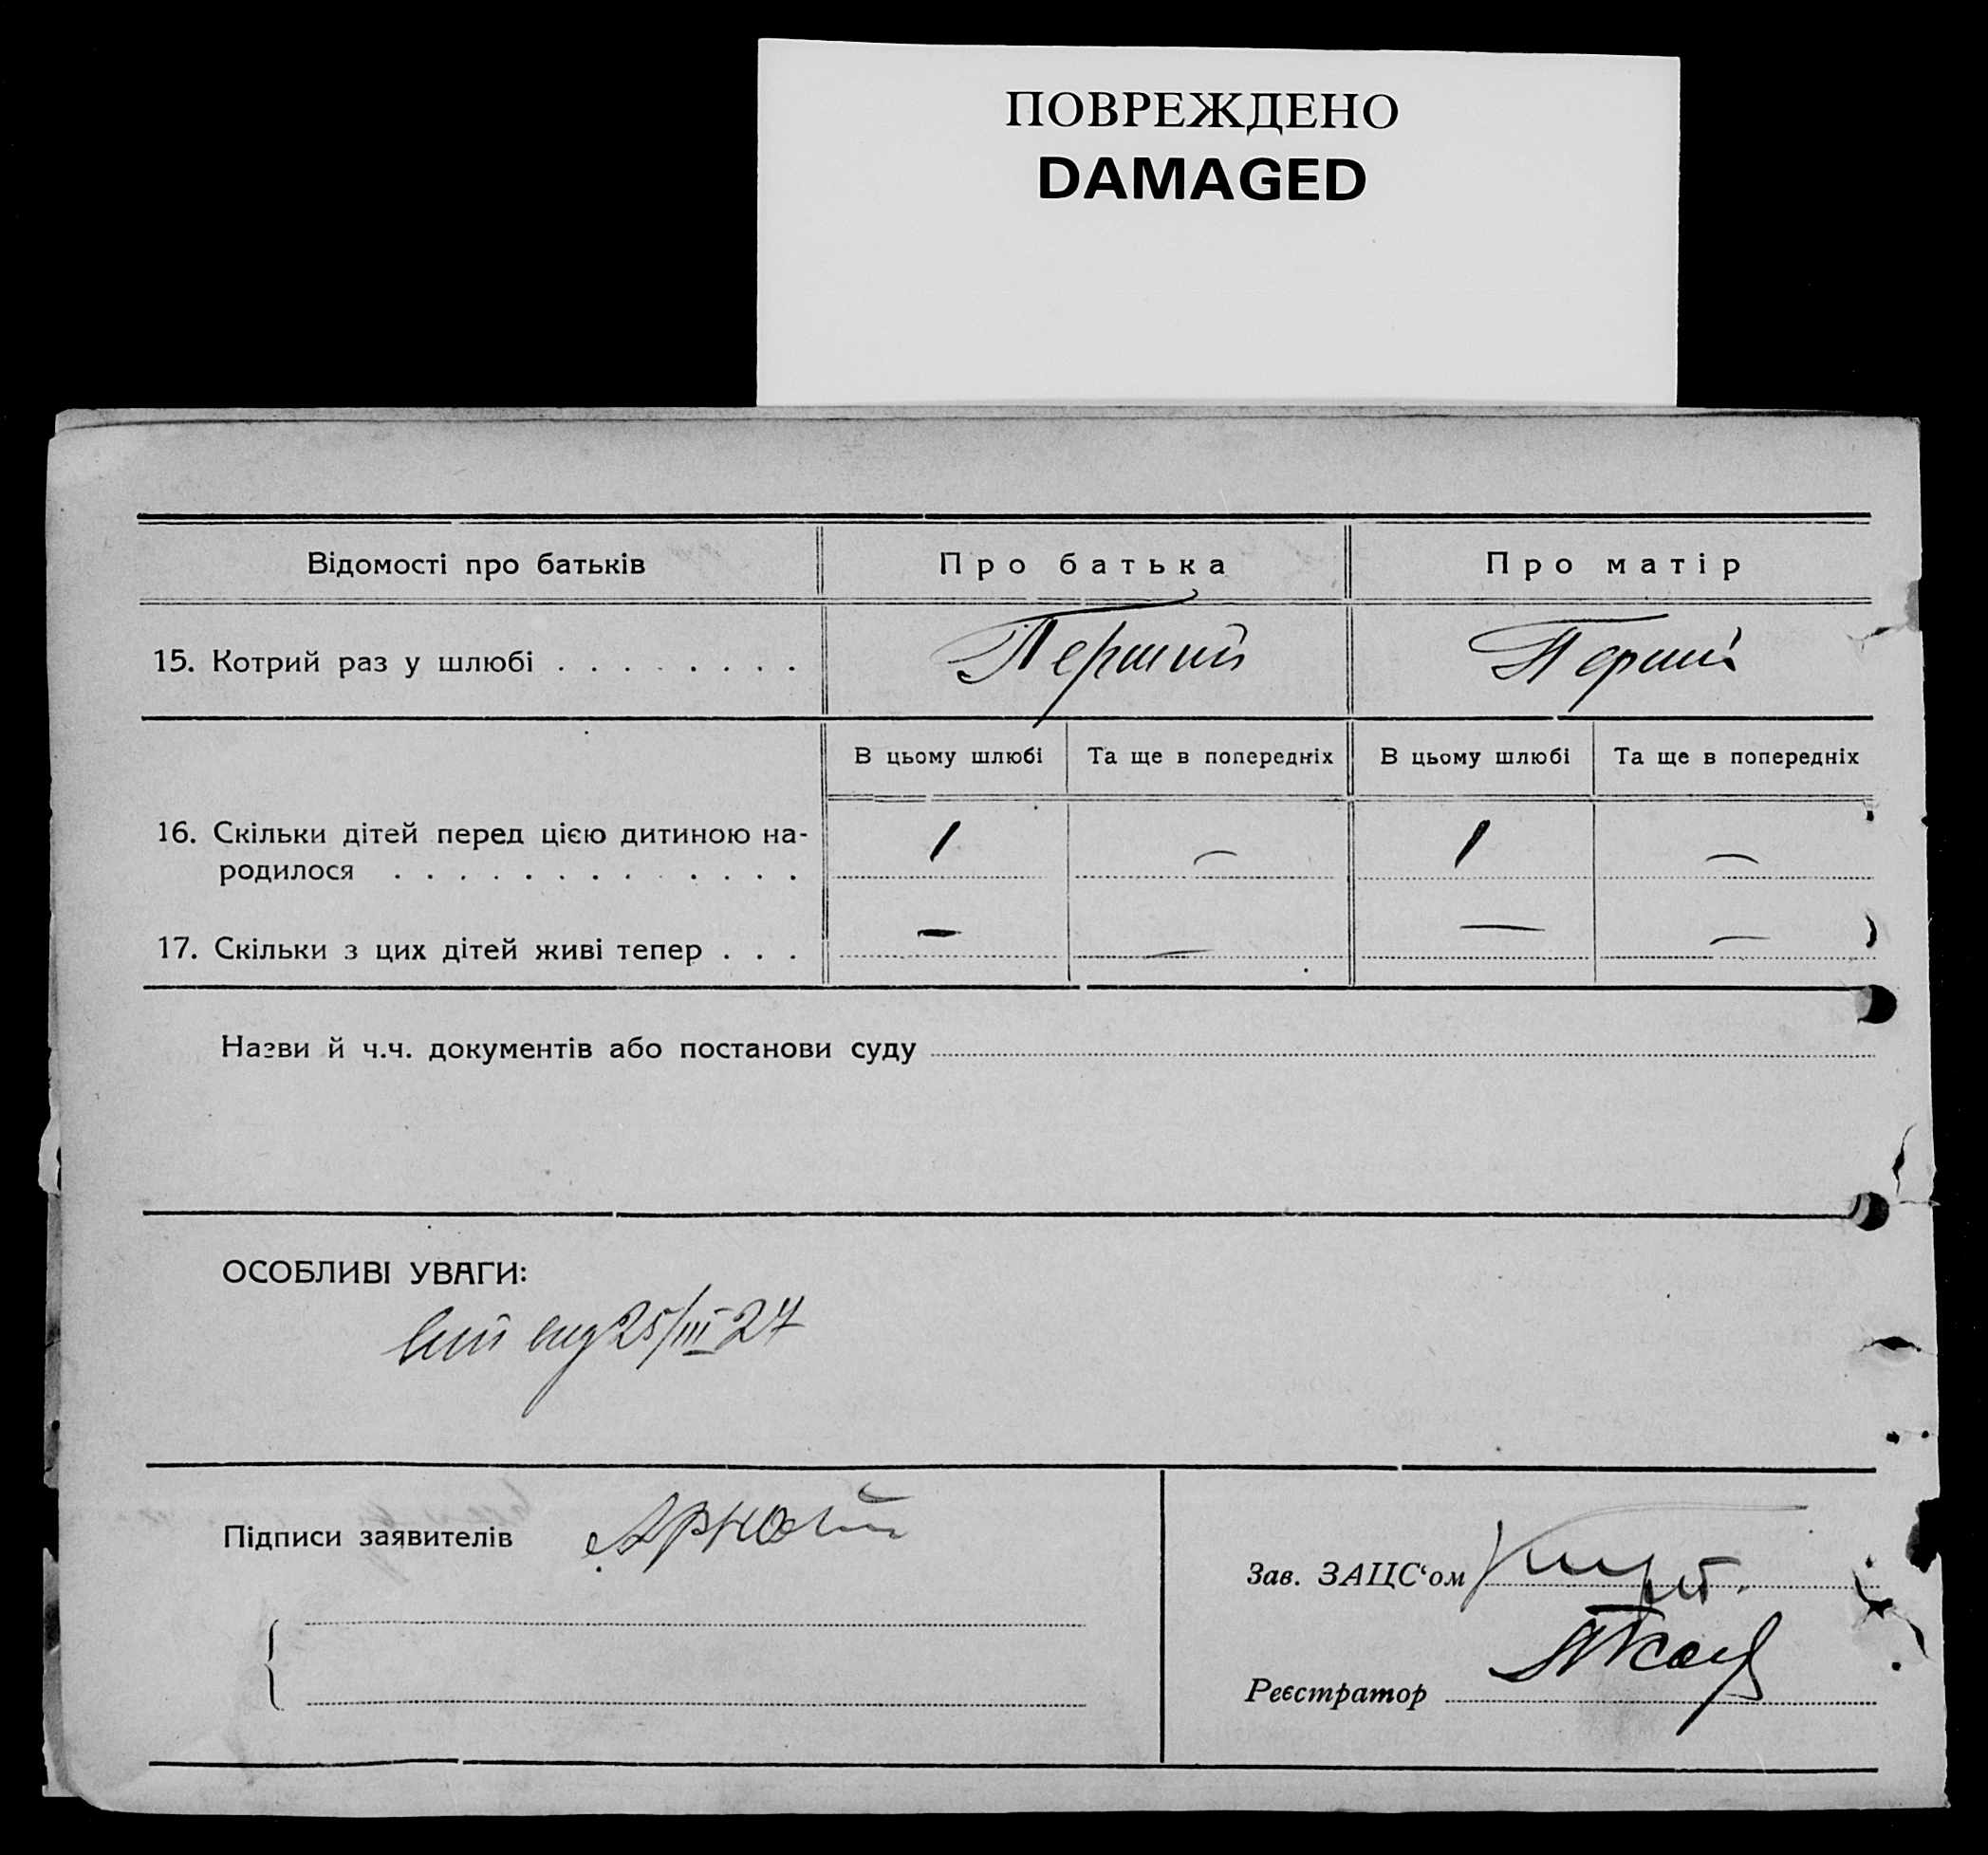 ПОВРЕЖДЕНО
DAMAGED
Відомості про батьків
Про батька
Про матір
15. Котрий раз у шлюбі . . . . . . . .
Перший
Перший
В цьому шлюбі
Та ще в попередніх
В цьому шлюбі
Та ще в попередніх
16. Скільки дітей перед цією дитиною на-
родилося . . . . . . . . . . . . .
1
—
1
—
17. Скільки з цих дітей живі тепер . . .
—
—
—
—
Назви й ч.ч. документів або постанови суду
ОСОБЛИВІ УВАГИ:
25/III 27
Підписи заявителів
Зав. ЗАЦС‘ом
Реєстратор